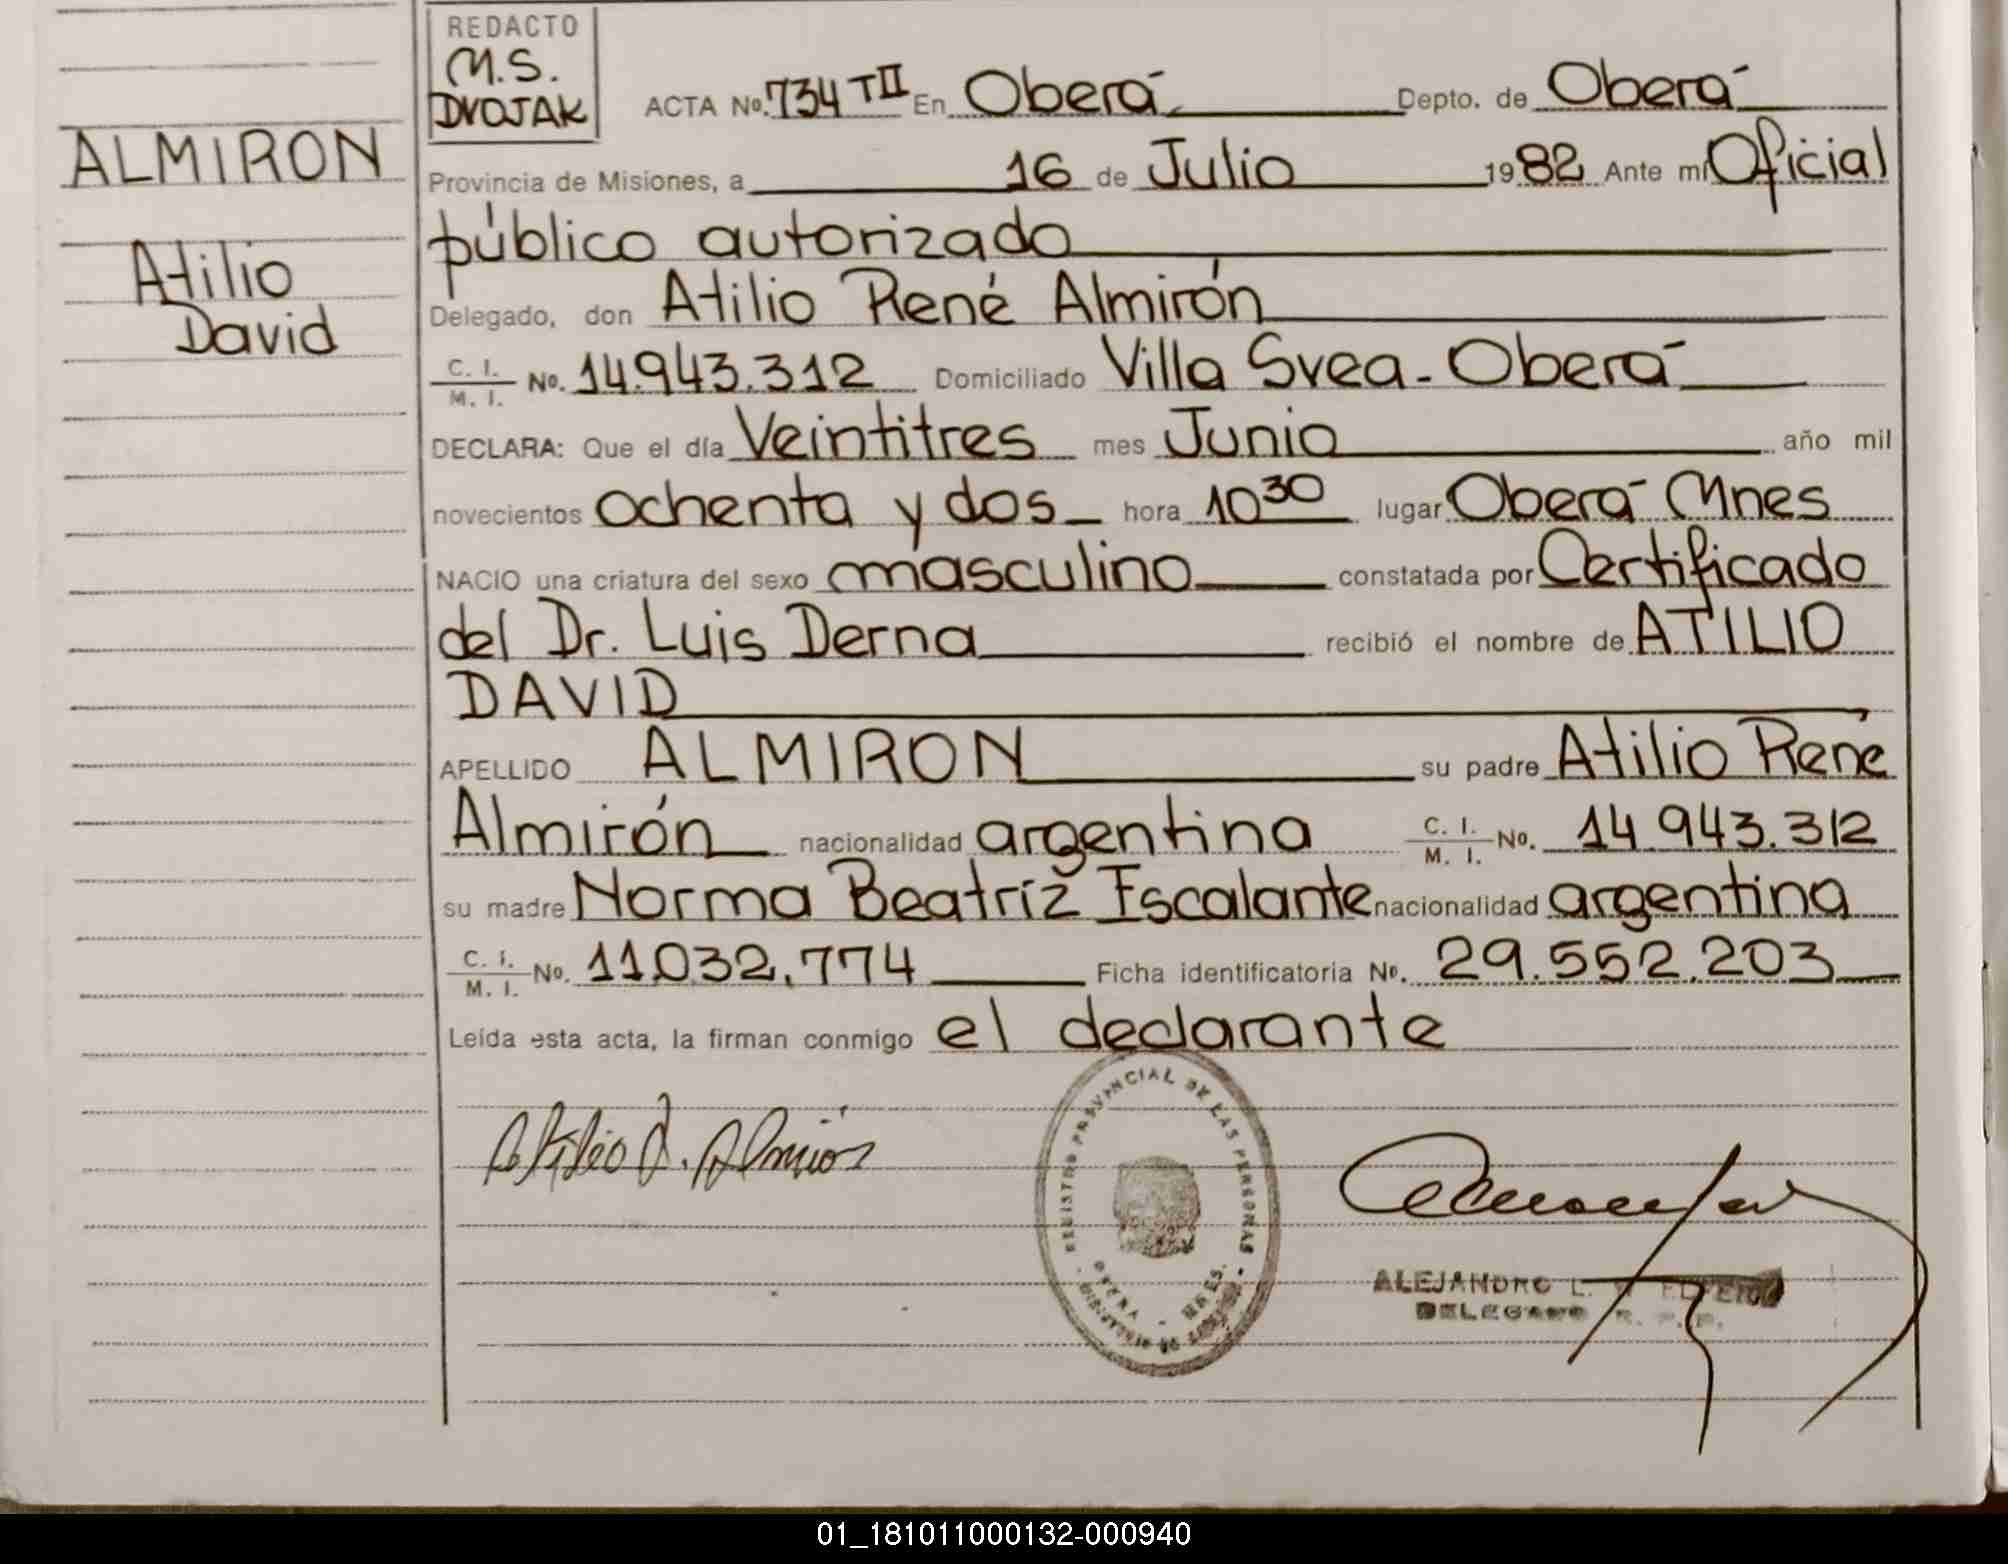 REDACTO
M.S.
DVOJAK
ALMIRON
Atilio
David
ACTA No. 734 TII En Oberá Depto. de Oberá
Provincia de Misiones, a 16 de Julio 1982 Ante mí Oficial
público autorizado
Delegado, don Atilio René Almirón
C. I. / M. I. No. 14.943.312 Domiciliado Villa Svea - Oberá
DECLARA: Que el día Veintitres mes Junio año mil
novecientos ochenta y dos hora 10 30 lugar Oberá Mnes
NACIO una criatura del sexo masculino constatada por Certificado
del Dr. Luis Derna recibió el nombre de ATILIO
DAVID
APELLIDO ALMIRON su padre Atilio René
Almirón nacionalidad argentina C. I. / M. I. No. 14.943.312
su madre Norma Beatríz Escalante nacionalidad argentina
C. I. / M. I. No. 11.032.774 Ficha identificatoria No. 29.552.203
Leída esta acta, la firman conmigo el declarante
Atilio R. Almirón
REGISTRO PROVINCIAL DE LAS PERSONAS
OBERA - MNES.
ALEJANDRO L.
DELEGADO R. P. P.
01_181011000132-000940